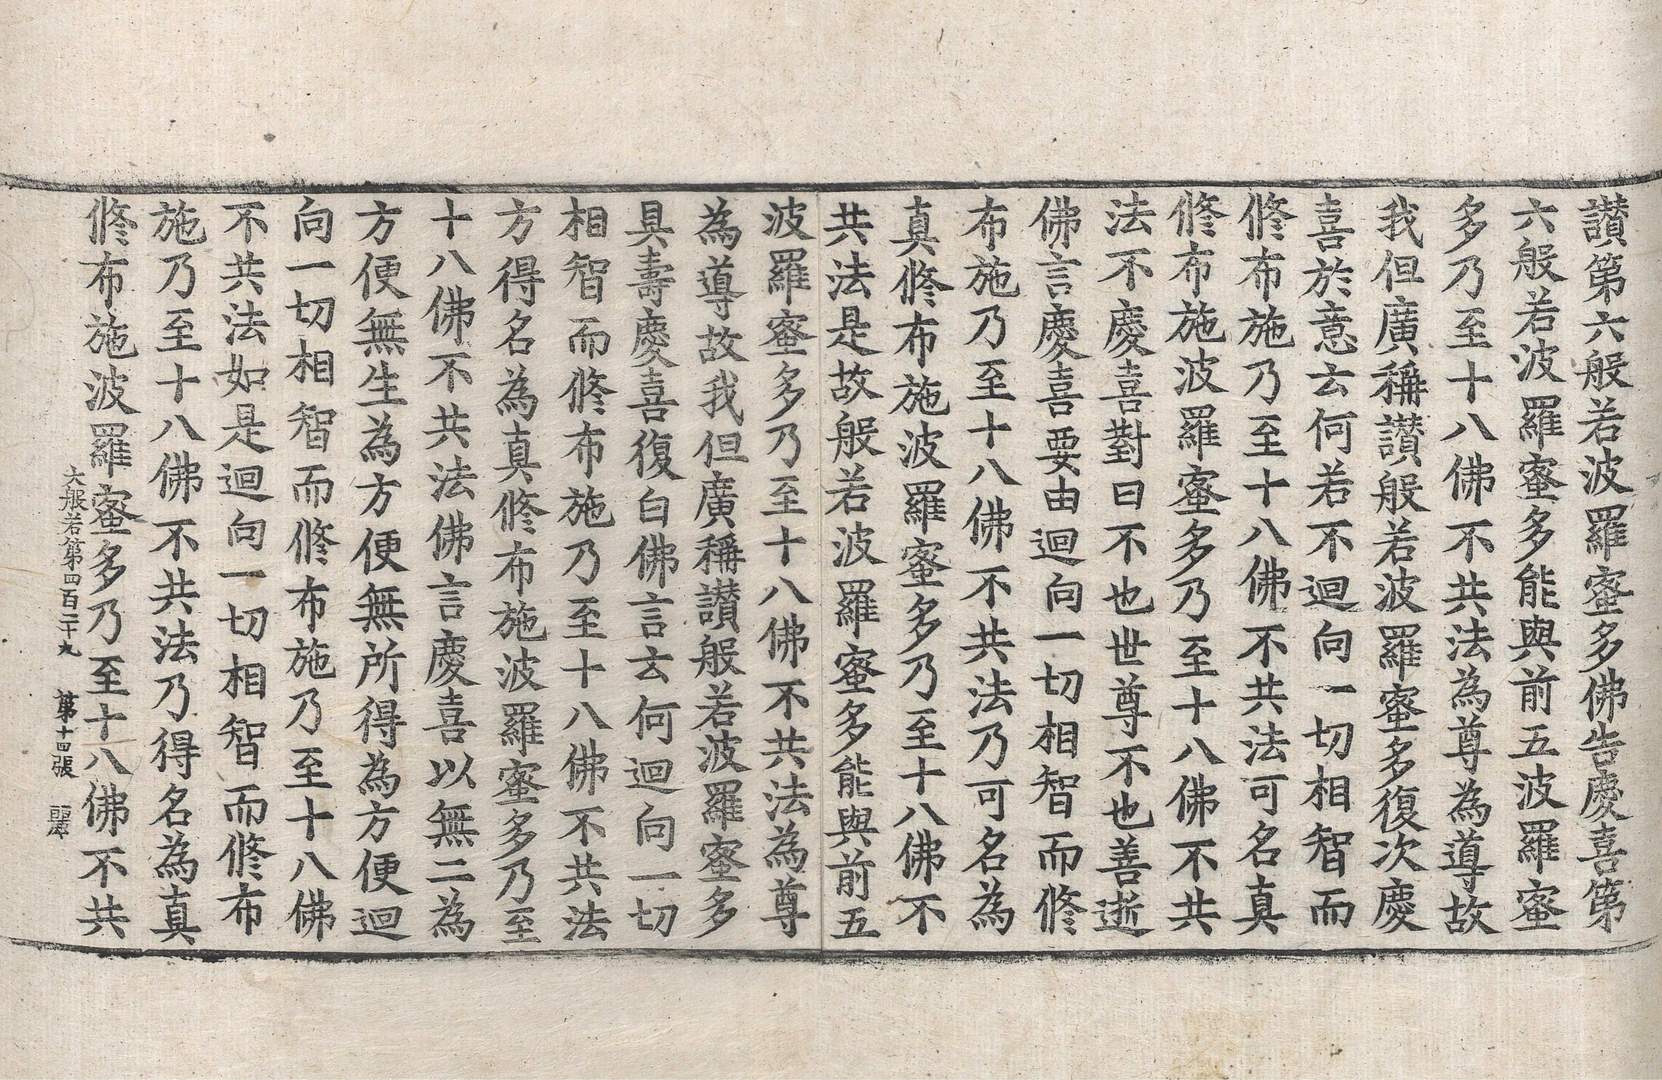 讚第六般若波羅蜜多佛告慶喜第
六般若波羅蜜多能與前五波羅蜜
多乃至十八佛不共法為尊為導故
我但廣稱讚般若波羅蜜多復次慶
喜於意云何若不迴向一切相智而
修布施乃至十八佛不共法可名真
修布施波羅蜜多乃至十八佛不共
法不慶喜對曰不也世尊不也善逝
佛言慶喜要由迴向一切相智而修
布施乃至十八佛不共法乃可名為
真修布施波羅蜜多乃至十八佛不
共法是故般若波羅蜜多能與前五
波羅蜜多乃至十八佛不共法為尊
為導故我但廣稱讚般若波羅蜜多
具壽慶喜復白佛言云何迴向一切
相智而修布施乃至十八佛不共法
方得名為真修布施波羅蜜多乃至
十八佛不共法佛言慶喜以無二為
方便無生為方便無所得為方便迴
向一切相智而修布施乃至十八佛
不共法如是迴向一切相智而修布
施乃至十八佛不共法乃得名為真
修布施波羅蜜多乃至十八佛不共
大般若第四百二十九 第十四張